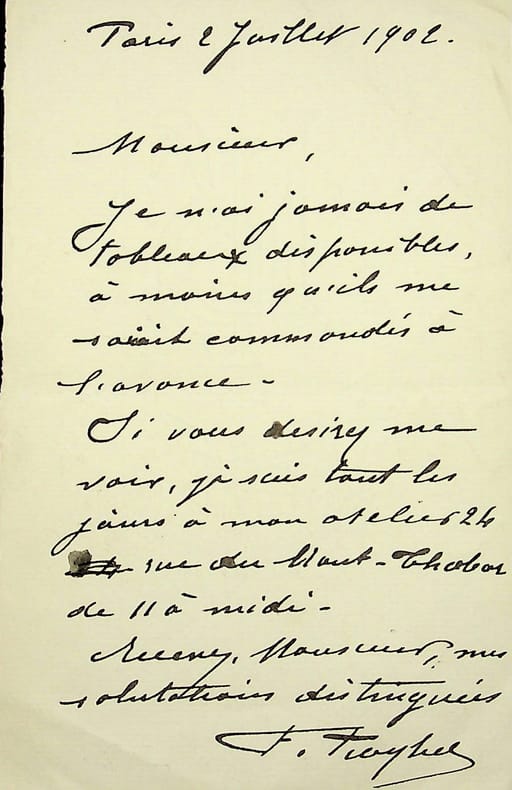 Paris 2 Juillet 1902.
Monsieur,
Je n'ai jamais de
tableaux disponibles,
à moins qu'ils me
soient commandés à
l'avance -
Si vous desirez me
voir, je suis tout les
jours à mon atelier 24
rue du Mont-Thabor
de 11 à midi -
Recevez, Monsieur, mes
salutations distinguées
F.